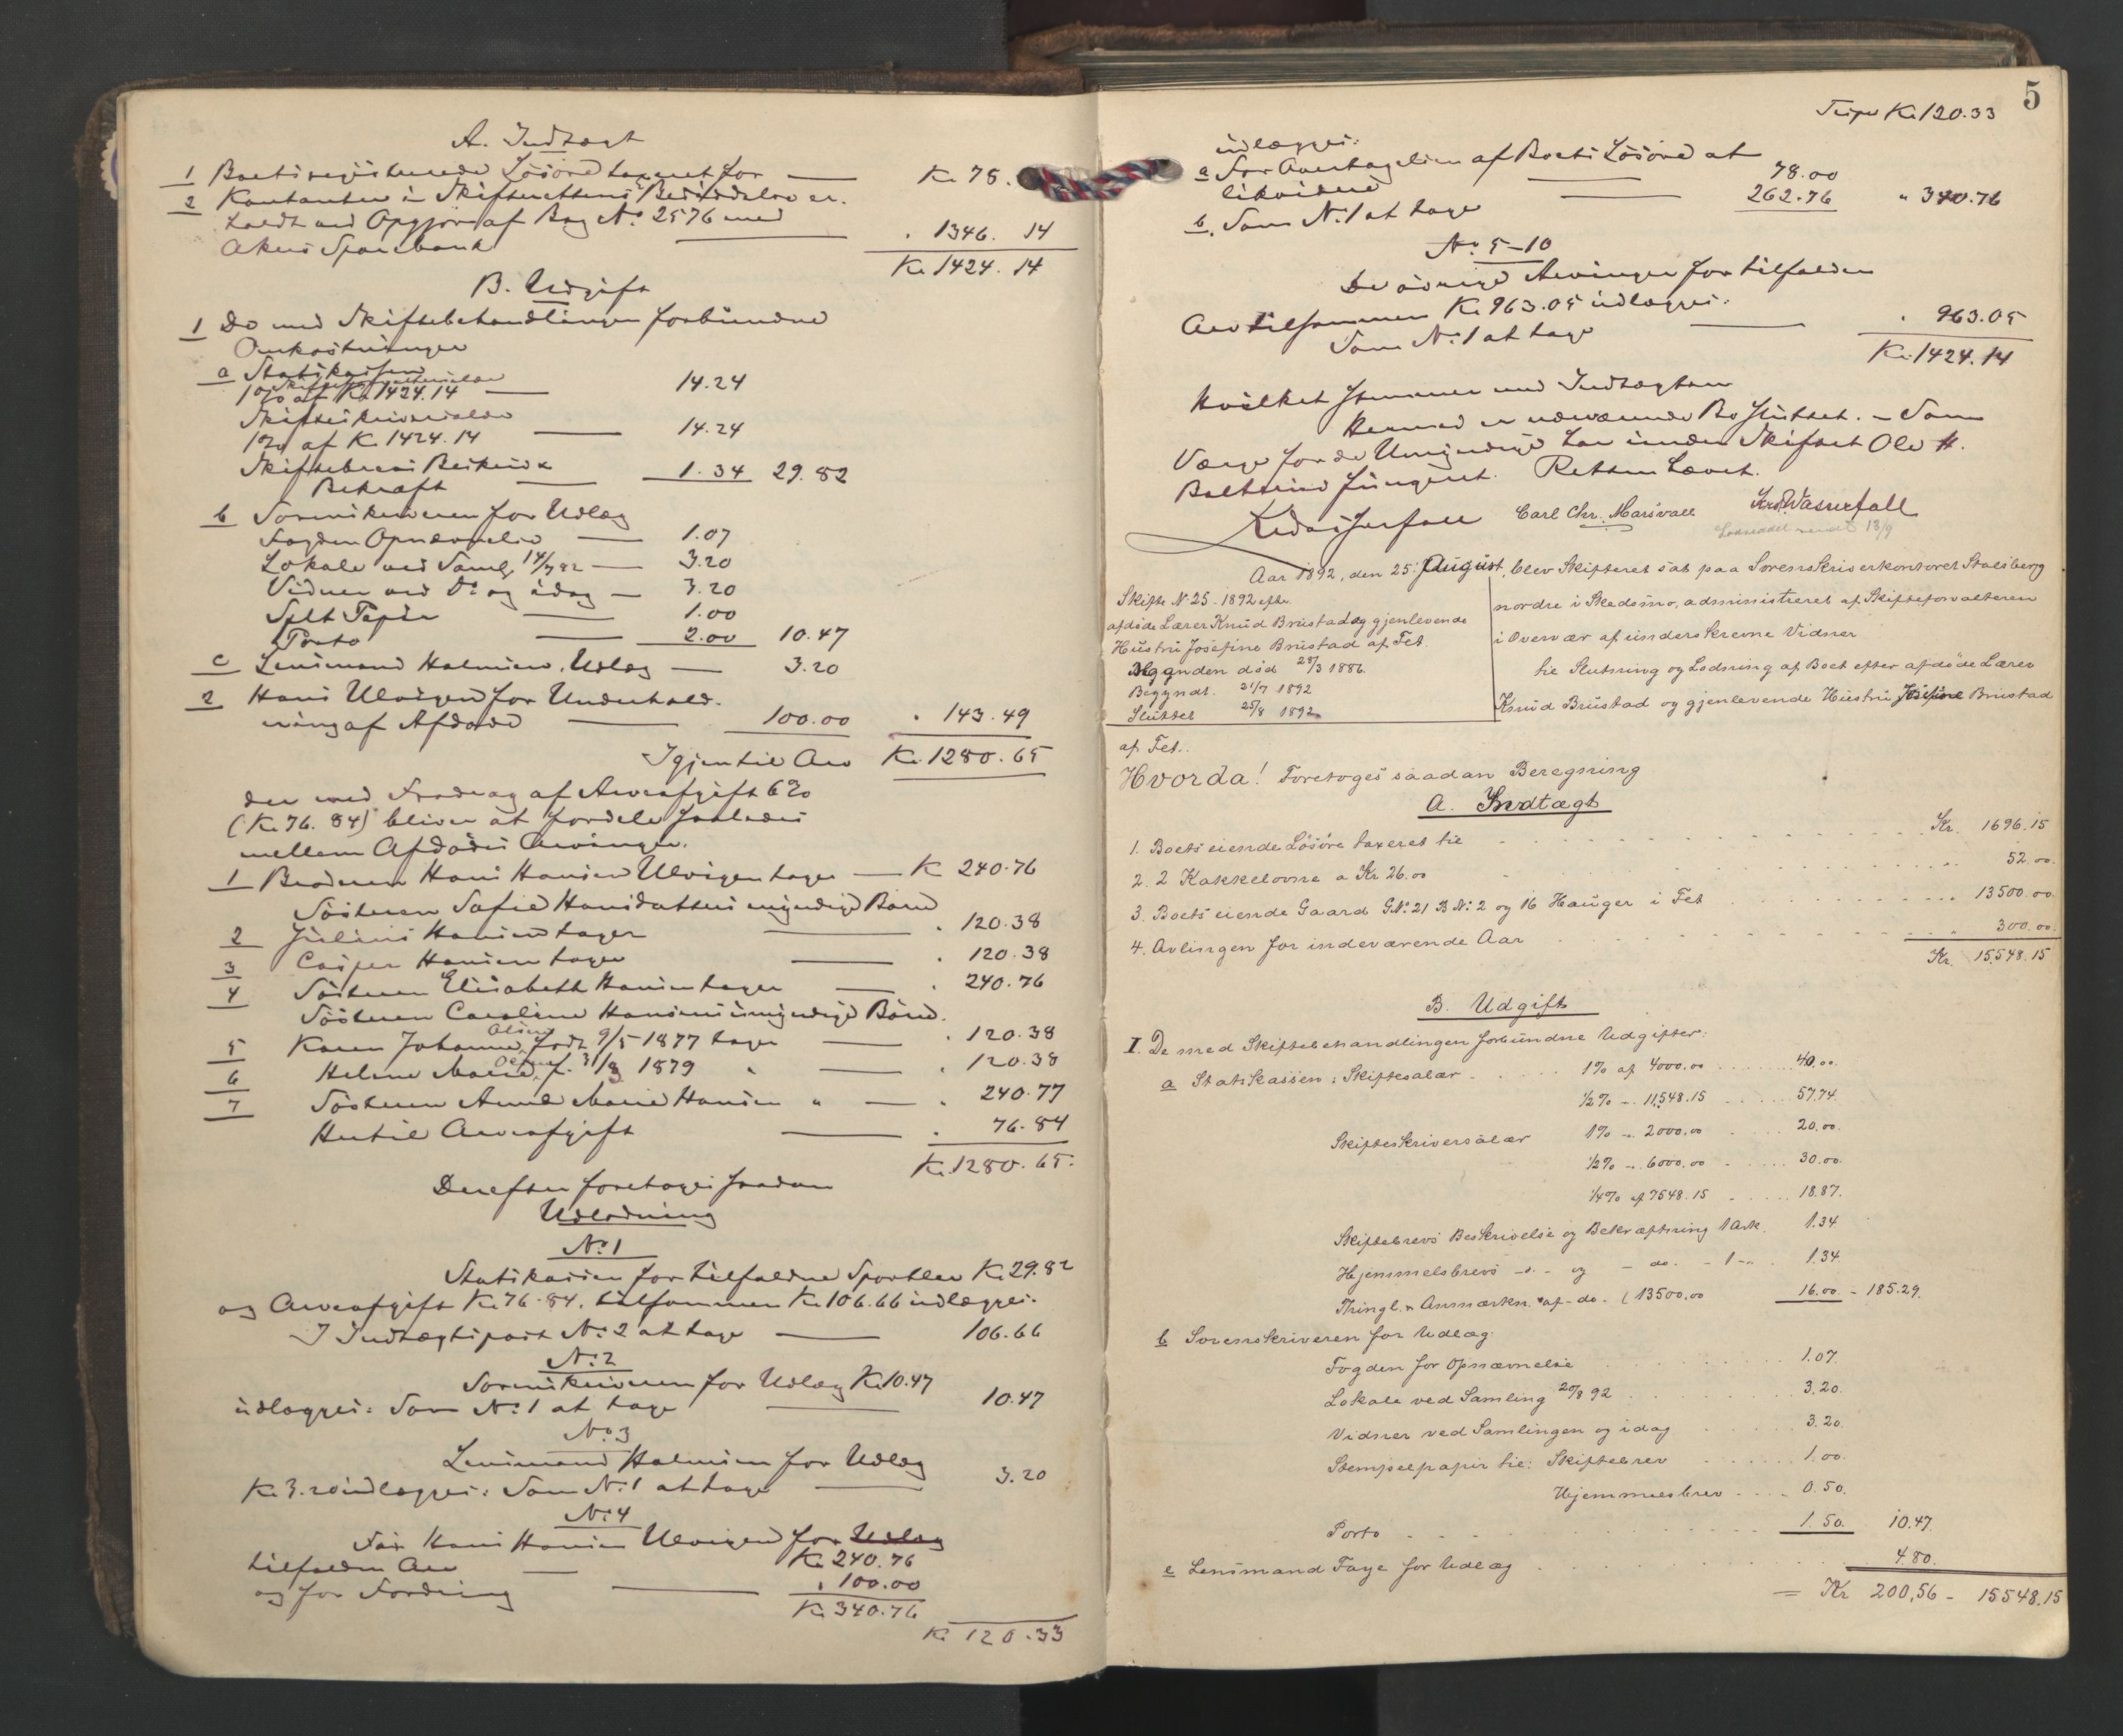 A. Indtægt
1 Boets registrerede Løsøre taxeret for — Kr 78.
2 Kontanter i Skifterettens Besiddelse er.
holdt ved Opgjør af Bog No. 2576 med
Akers Sparebank — " 1346. 14
Kr 1424. 14
B. Udgift
1 De med Skiftebehandlingen forbundne
Omkostninger
a Statskassen
Skifteforvaltersalær
1% af Kr 1424.14 — 14.24
Skifteskriversalær
1% af Kr. 1424.14 — 14.24
Skiftebrevs Beskriv &
Bekræft — 1.34 29.82
b Sorenskriveren for Udlæg
Fogden Opnævnelse — 1.07
Lokale ved Samlg. 14/7 92 — 3.20
Vidner ved Do og idag — 3.20
Stplt Papir 1.00
Porto — 2.00 10.47
c Lensmand Halmsen, Udlæg — 3.20
2 Hans Ulvigen for Underhold.
ning af Afdøde — 100.00 " 143.49
Igjen til Arv Kr. 1280.65
der med Fradrag af Arveafgift 6%
(Kr. 76. 84) bliver at fordele saaledes
mellem Afdødes Arvinger.
1 Broderen Hans Hansen Ulvigen tager — Kr 240.76
Søsteren Sofie Hansdatters myndige Børn
2 Julius Hansen tager — " 120.38
3 Casper Hansen tager — " 120.38
4 Søsteren Elisabeth Hansen tager — " 240.76
Søsteren Caroline Hansens umyndige Børn.
5 Karen Johanne Olsen, født 9/5 1877 tager — " 120.38
6 Helene Marie Olsen f. 31/8 1879 " — " 120.38
7 Søsteren Anne Marie Hansen " — " 240.77
Hertil Arveafgift — " 76.84
Kr. 1280. 65.
Derefter foretages saadan
Udlodning
No. 1
Statskassen for tilfaldne Sportler Kr. 29.82
og Arveafgift Kr. 76.84. tilsammen Kr. 106.66 udlægges.
I Indtægtspost No. 2 at tage — 106.66
No. 2
Sorenskriveren for Udlæg Kr. 10.47
udlægges: Som No. 1 at tage — 10.47
No. 3
Lensmand Halmsen for Udlæg
Kr. 3.20 udlægges: Som No. 1 at tage — 3.20
No. 4
Hans Hansen Ulvigen for Udlæg
tilfalden Arv — Kr. 240.76
og for Fordring — " 100.00
Kr. 340.76
Kr. 120.33
5
Trspr Kr. 120.33
udlægges:
a For Overtagelsen af Boets Løsøre at
likvidere — 78.00
b. Som No. 1 at tage — 262.76 " 340.76
No. 5–10
De øvrige Arvinger for tilfalden
Arv tilsammen Kr. 963.05 udlægges:
Som No. 1 at tage — " 963.05
Kr. 1424.14
Hvilket stemmer med Indtægten
Hermed er nærværende Bo sluttet. – Som
Værge for de Umyndige har under Skiftet Ole H.
fungeret. Retten hævet.
KWasserfall Carl Chr. Marsvall Wasserfall
13/9
Aar 1892, den 25. August, blev Skifteret sat paa Sorenskriverkontoret Stalsberg
nordre i Skedsmo, administreret af Skifteforvalteren
i Overvær af underskrevne Vidner
til Slutning og Lodning af Boet efter afdøde Lærer
Knud Brustad og gjenlevende Hustru Josefine Brustad
Skifte N. 25 - 1892 efter
afdøde Lærer Knud Brustad og gjenlevende
Hustru Josefine Brustad af Fet.
død 28/3 1886.
Begyndt. 21/7 1892
Sluttet 25/8 1892
af Fet.
Hvorda! Foretoges saadan Beregning
A. Indtægt
1. Boets eiende Løsøre taxeret til Kr. 1696.15
2. 2 Kakkelovne a Kr 26.00 " 52.00.
3. Boets eiende Gaard G.No. 21 B.No. 2 og 16 Hauger i Fet " 13500.00.
4. Avlingen for indeværende Aar " 300.00.
Kr. 15,548.15
B. Udgift
I. De med Skiftebehandlingen forbundne Udgifter:
a Statskassen: Skiftesalær 1% af 4000.00 40.00.
1/2% - 11,548.15 57.74.
Skifteskriversalær 1% - 2000.00 20.00.
1/2% - 6000.00 30.00.
1/4% af 7548.15 18.87.
Skiftebrevs Beskrivelse og Bekræftning 1 Ark 1.34
Hjemmelsbrevs -"- og - do. - 1 -"- 1.34
Thingl. & Anmærkn. af - do. (13500.00 16.00 - 185.29.
b Sorenskriveren for Udlæg:
Fogden for Opnævnelse 1.07.
Lokale ved Samling 20/8 92 3.20.
Vidner ved Samlingen og idag 3.20.
Stempelpapir til: Skiftebrev 1.00.
Hjemmelsbrev 0.50.
Porto 1.50. 10.47.
c Lensmand Faye for Udlæg 4.80.
= Kr 200,56 - 15548.15